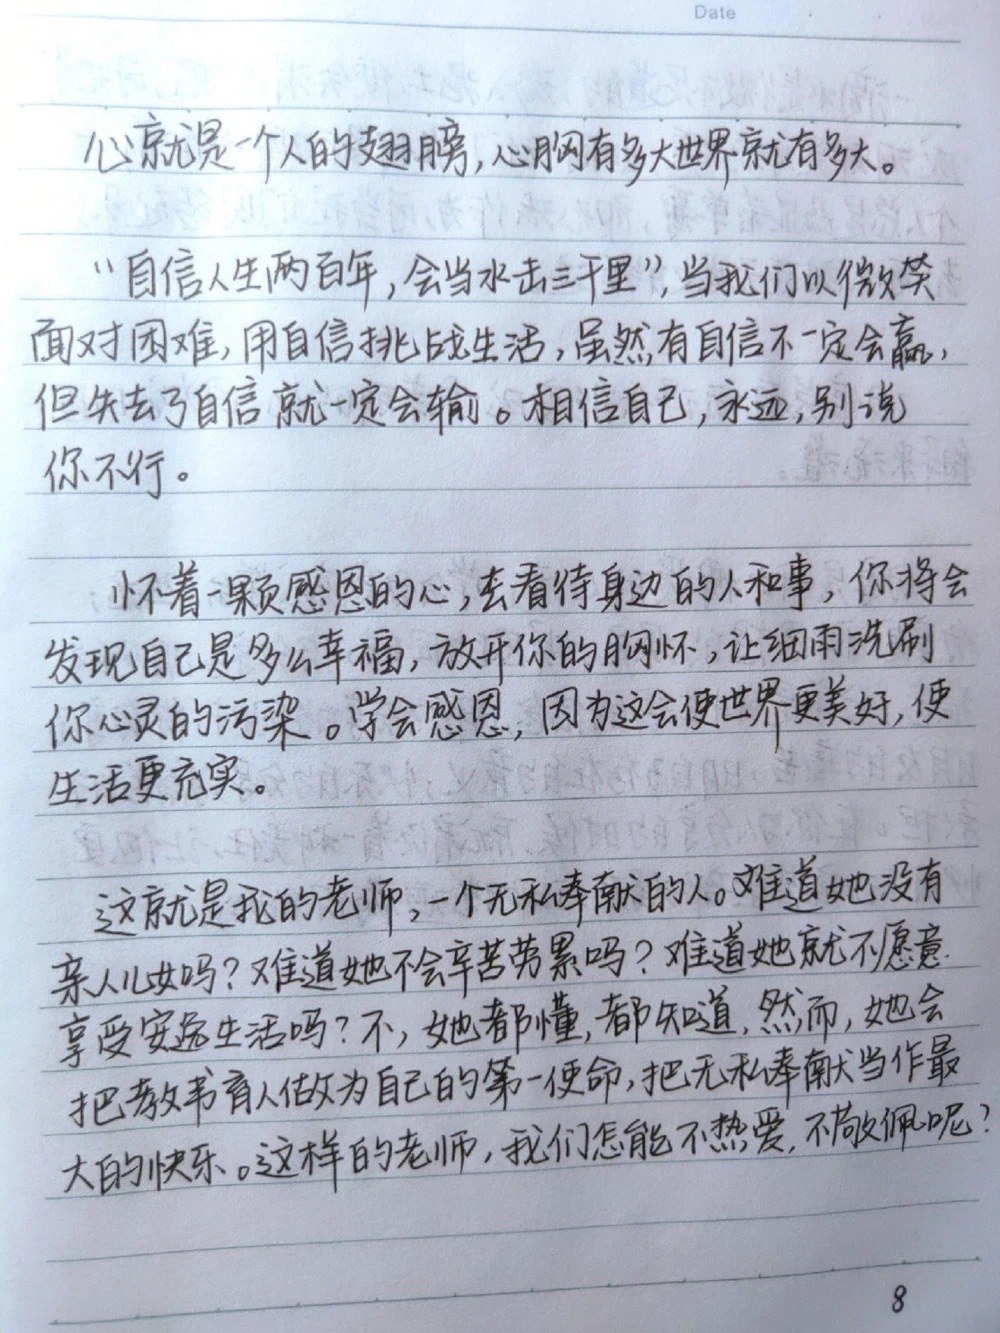 Date
心就是一个人的翅膀，心胸有多大世界就有多大。
“自信人生两百年，会当水击三千里”，当我们以微笑
面对困难，用自信挑战生活，虽然有自信不一定会赢，
但失去了自信就一定会输。相信自己，永远，别说
你不行。
怀着一颗感恩的心，去看待身边的人和事，你将会
发现自己是多么幸福，放开你的胸怀，让细雨洗刷
你心灵的污染。学会感恩，因为这会使世界更美好，使
生活更充实。
这就是我的老师，一个无私奉献的人。难道她没有
亲人儿女吗？难道她不会辛苦劳累吗？难道她就不愿意
享受安逸生活吗？不，她都懂，都知道，然而，她会
把教书育人做为自己的第一使命，把无私奉献当作最
大的快乐。这样的老师，我们怎能不热爱，不敬佩呢？
8